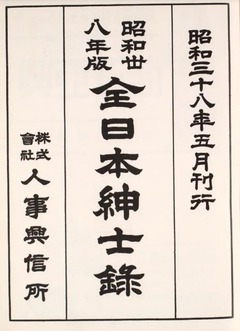 昭和三十八年五月刊行
昭和丗
八年版
全日本紳士錄
株式
會社
人事興信所